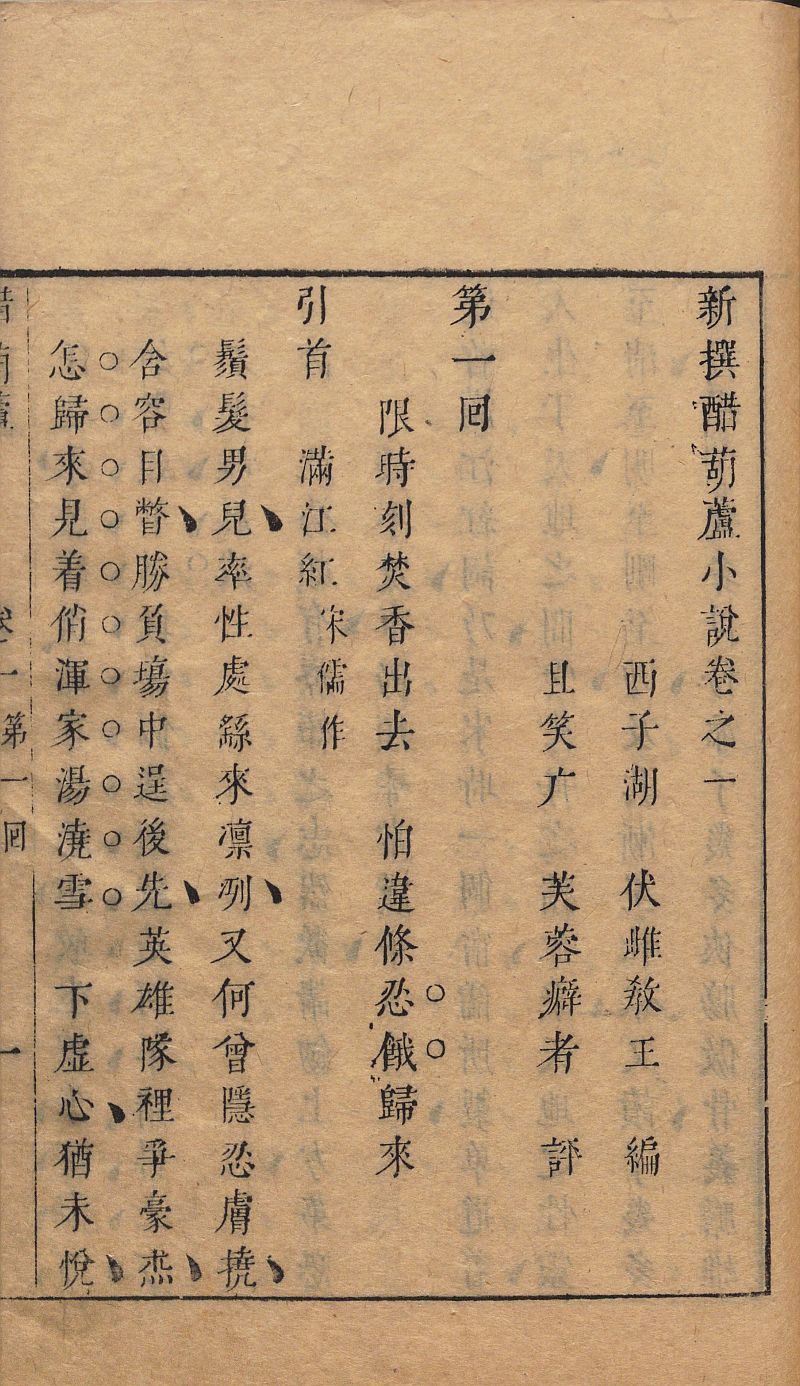 新撰醋葫蘆小說卷之一
西子湖伏雌教王編
且笑广芙蓉癖者評
第一回
限時刻焚香出去 怕違條忍餓歸來
引首 滿江紅 宋儒作
鬚髮男兒率性處繇來凛冽又何曾隱忍膚撓
含容目瞥勝負場中逞後先英雄隊裡爭豪杰
怎歸來見着俏渾家湯澆雪 下虛心猶未悅
醋葫蘆 卷一第一回 一